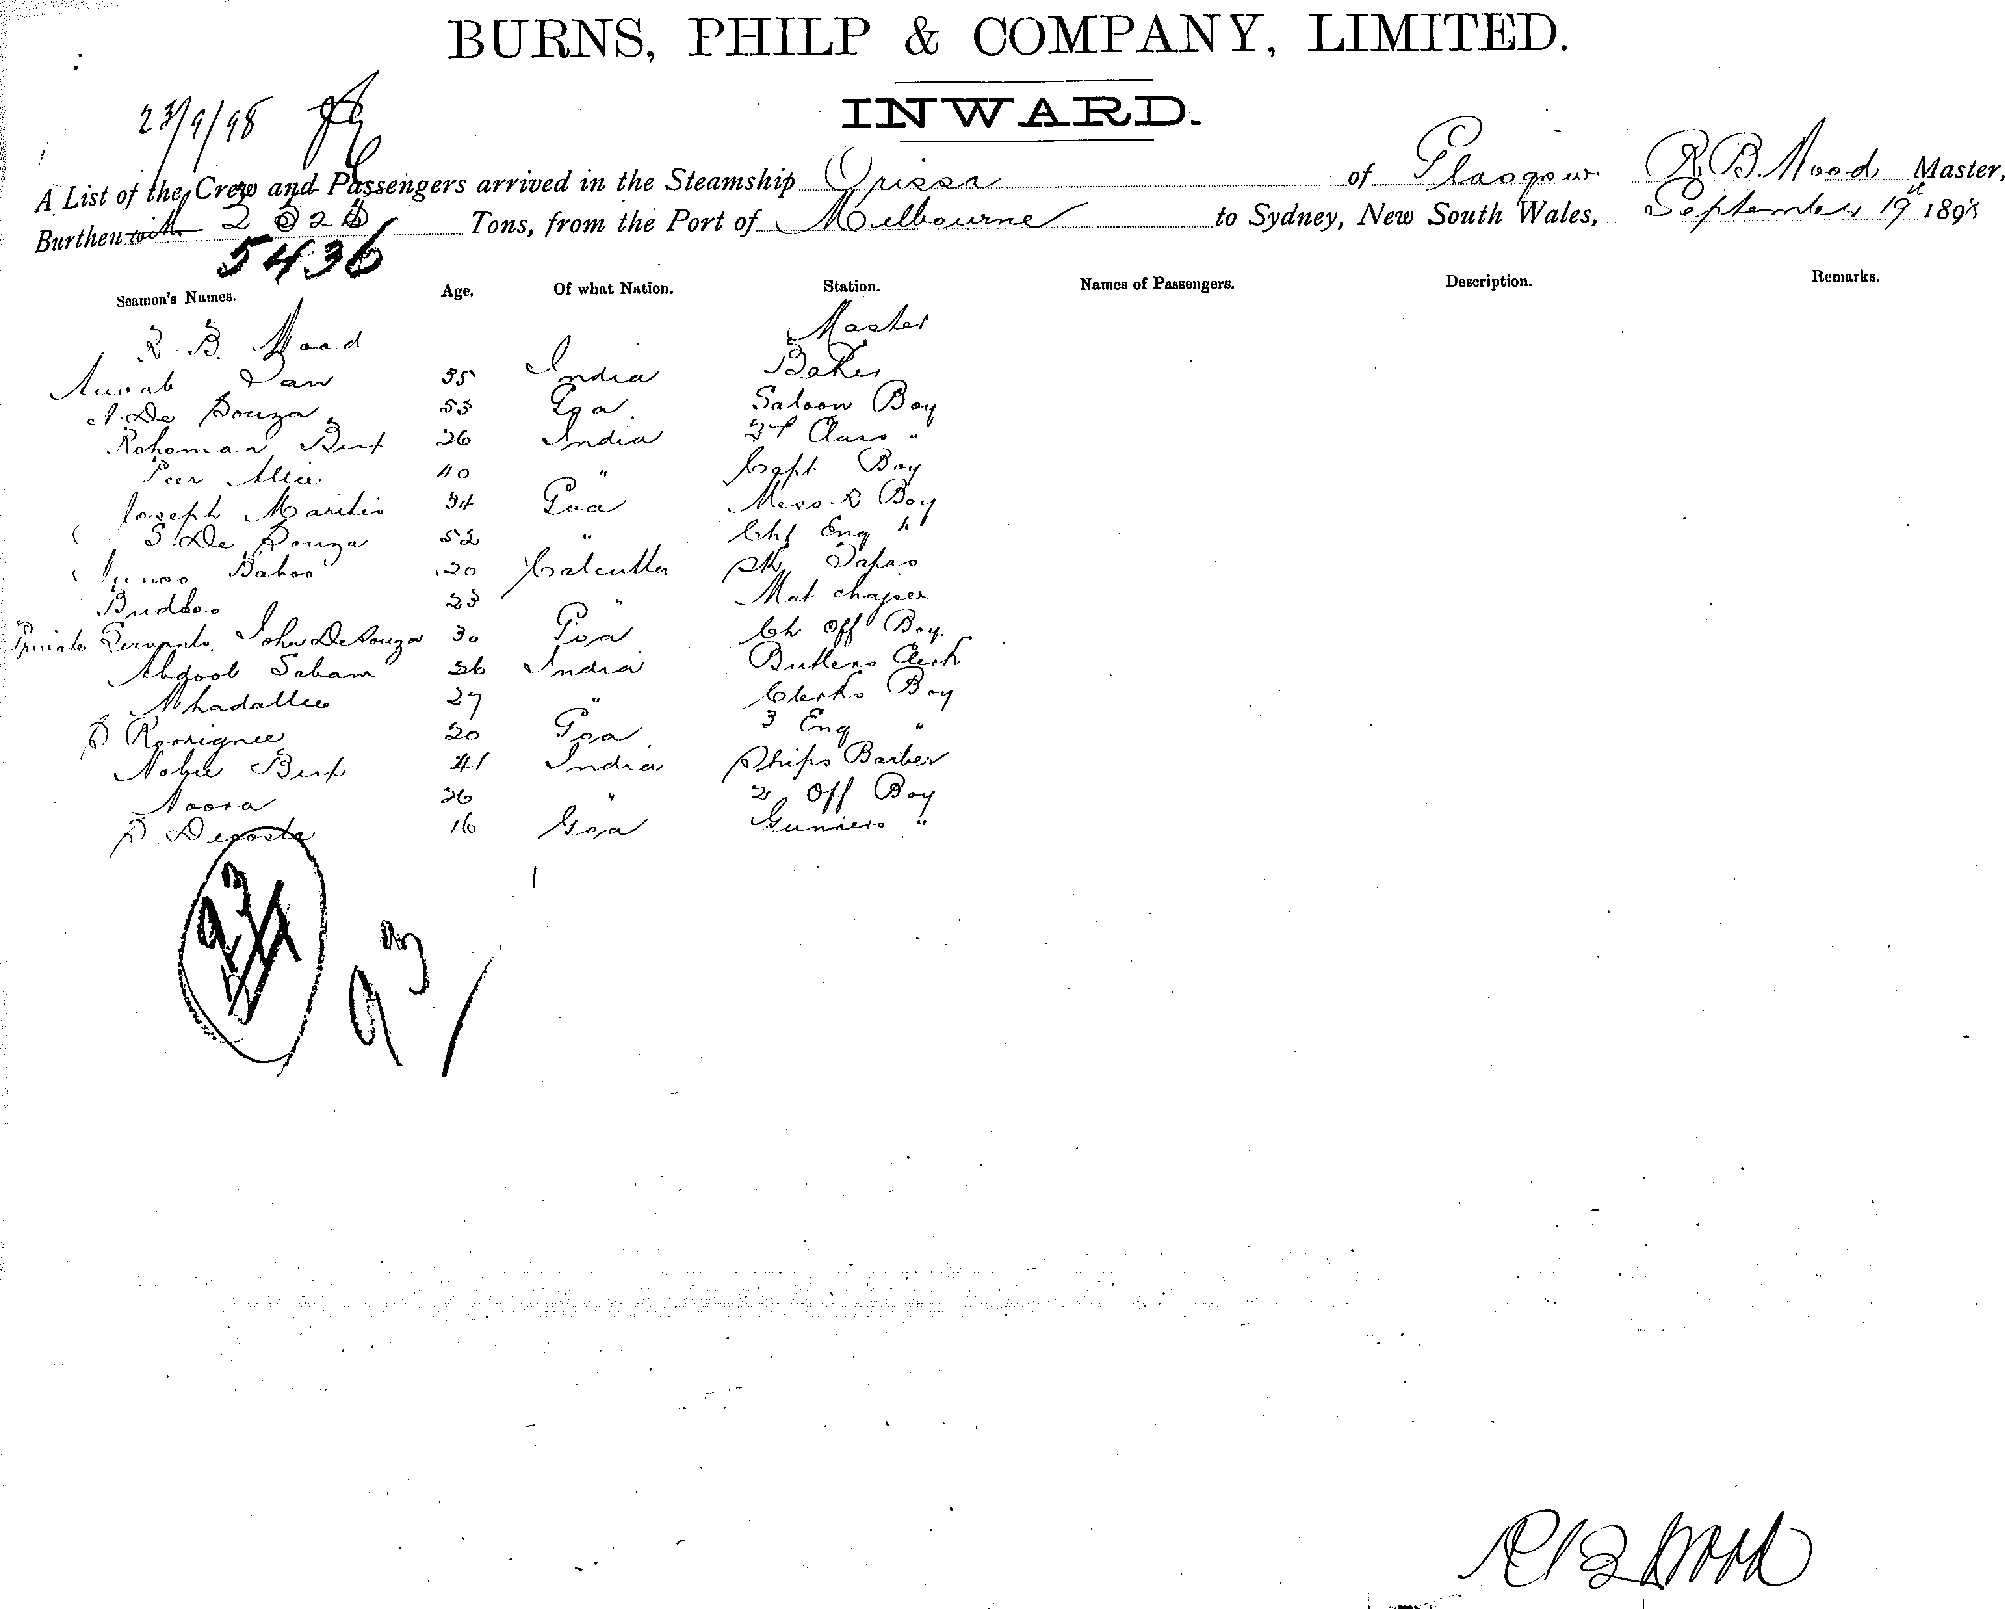 BURNS, PHILP & COMPANY, LIMITED.
INWARD.
23/9/98
A List of the Crew and Passengers arrived in the Steamship Orissa of Glasgow R B. Mood Master,
Burthen with Tons, from the Port of Melbourne to Sydney, New South Wales, September 19th 1898
5436
Seamen's Names. Age. Of what Nation. Station. Names of Passengers. Description. Remarks.
R. B. Mood Master
35 India Baker
De Souza 53 Goa Saloon Boy
Rohoman Bux 26 India Class "
Peer Allie 40 " Capt Boy
Joseph 34 Goa Mess R Boy
S. De Souza 52 " Chf Eng "
Baboo 20 Calcutta Topas
Budhoo 23 "
Private Servants John DeSouza 30 Goa Ch Off Boy.
Abdool 26 India Butlers Clerk
Mhadallie 27 " Clerks Boy
20 Goa 3 Eng "
Nobie Bux 41 India Ships Barber
Noora 26 " 2 Off Boy
Decosta 16 Goa Gunners "
93
93